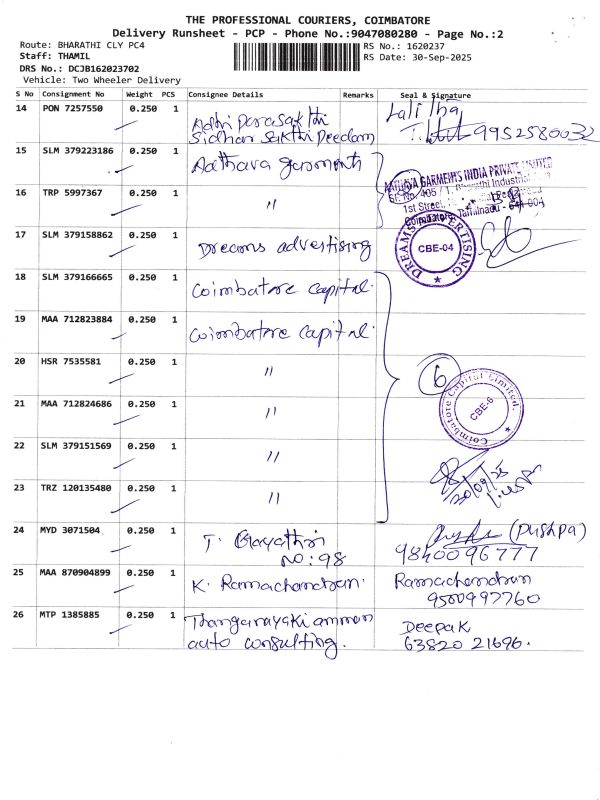 THE PROFESSIONAL COURIERS, COIMBATORE
Delivery Runsheet - PCP - Phone No.:9047080280 - Page No.:2
Route: BHARATHI CLY PC4
RS No.: 1620237
Staff: THAMIL
RS Date: 30-Sep-2025
DRS No.: DCJB162023702
Vehicle: Two Wheeler Delivery
S No Consignment No Weight PCS Consignee Details Remarks Seal & Signature
14 PON 7257550 0.250 1 Adhi parasakthi Lalitha
Sidhar Sakthi Peedam 9952580032
15 SLM 379223186 0.250 1 Aathava garments
ATHAVA GARMENTS INDIA PRIVATE LIMITED
16 TRP 5997367 0.250 1 "
1st Street,
Coimbatore, Tamilnadu - 641 004
17 SLM 379158862 0.250 1 Dreams advertising
DREAMS ADVERTISING CBE-04
18 SLM 379166665 0.250 1 Coimbatore capital.
19 MAA 712823884 0.250 1 Coimbatore capital.
20 HSR 7535581 0.250 1 "
6
21 MAA 712824686 0.250 1 "
Coimbatore Capital Limited. CBE-6
22 SLM 379151569 0.250 1 "
30/09/25
23 TRZ 120135480 0.250 1 "
24 MYD 3071504 0.250 1 T. Gayathri (Pushpa)
NO: 98 9840096777
25 MAA 870904899 0.250 1 K. Ramachandran. Ramachandran
9500997760
26 MTP 1385885 0.250 1 Thanganayakiamman Deepak
auto consulting. 63820 21696.